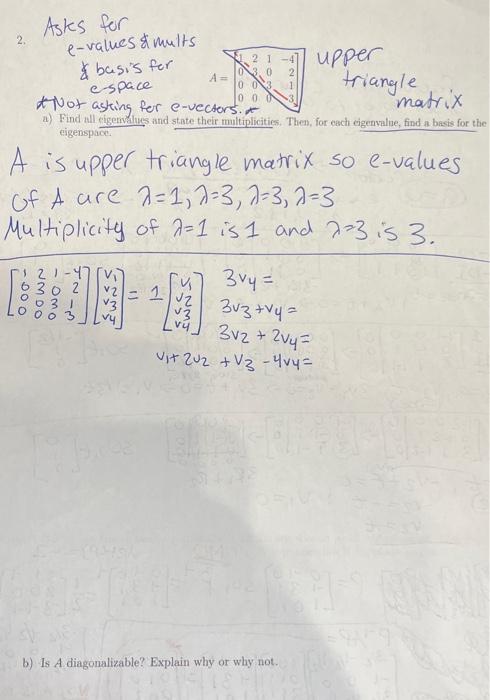 2. Asks for
e-values & mults
& basis for
e-space
*Not asking for e-vectors.*
A = [1 2 1 -4
0 3 0 2
0 0 3 1
0 0 0 3]
upper
triangle
matrix
a) Find all eigenvalues and state their multiplicities. Then, for each eigenvalue, find a basis for the
eigenspace.
A is upper triangle matrix so e-values
of A are λ=1, λ=3, λ=3, λ=3
Multiplicity of λ=1 is 1 and λ=3 is 3.
[1 2 1 -4] [v1] = 1 [v1] 3v4 =
[0 3 0 2] [v2] [v2] 3v3 + v4 =
[0 0 3 1] [v3] [v3] 3v2 + 2v4 =
[0 0 0 3] [v4] [v4] v1 + 2v2 + v3 - 4v4 =
b) Is A diagonalizable? Explain why or why not.